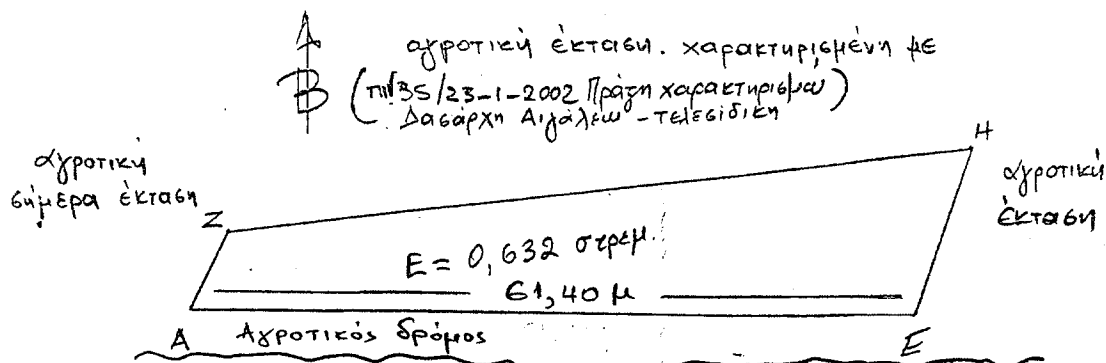 αγροτική έκταση. χαρακτηρισμένη με
Β (την 35/23-1-2002 Πράξη χαρακτηρισμού)
Δασάρχη Αιγάλεω - τελεσίδικη
αγροτική
σήμερα έκταση
Η
αγροτική
έκταση
Ζ
Ε = 0,632 στρεμ.
61,40 μ
Α Αγροτικός δρόμος Ε